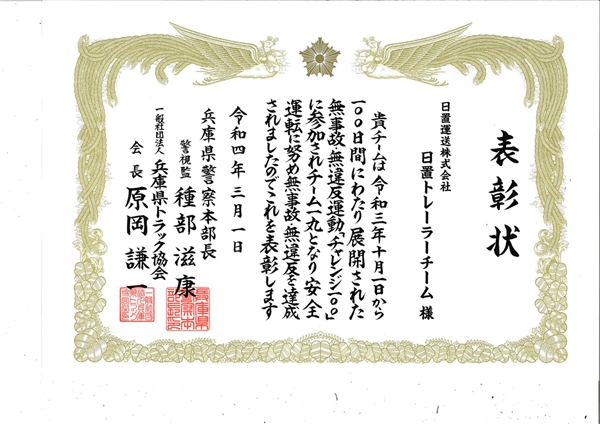 表彰状
日置運送株式会社
日置トレーラーチーム 様
貴チームは令和三年十月一日から
一〇〇日間にわたり展開された
無事故・無違反運動「チャレンジ一〇〇」
に参加されチーム一丸となり安全
運転に努め無事故・無違反を達成
されましたのでこれを表彰します
令和四年三月一日
兵庫県警察本部長
警視監 種部滋康
一般社団法人 兵庫県トラック協会
会長 原岡謙一